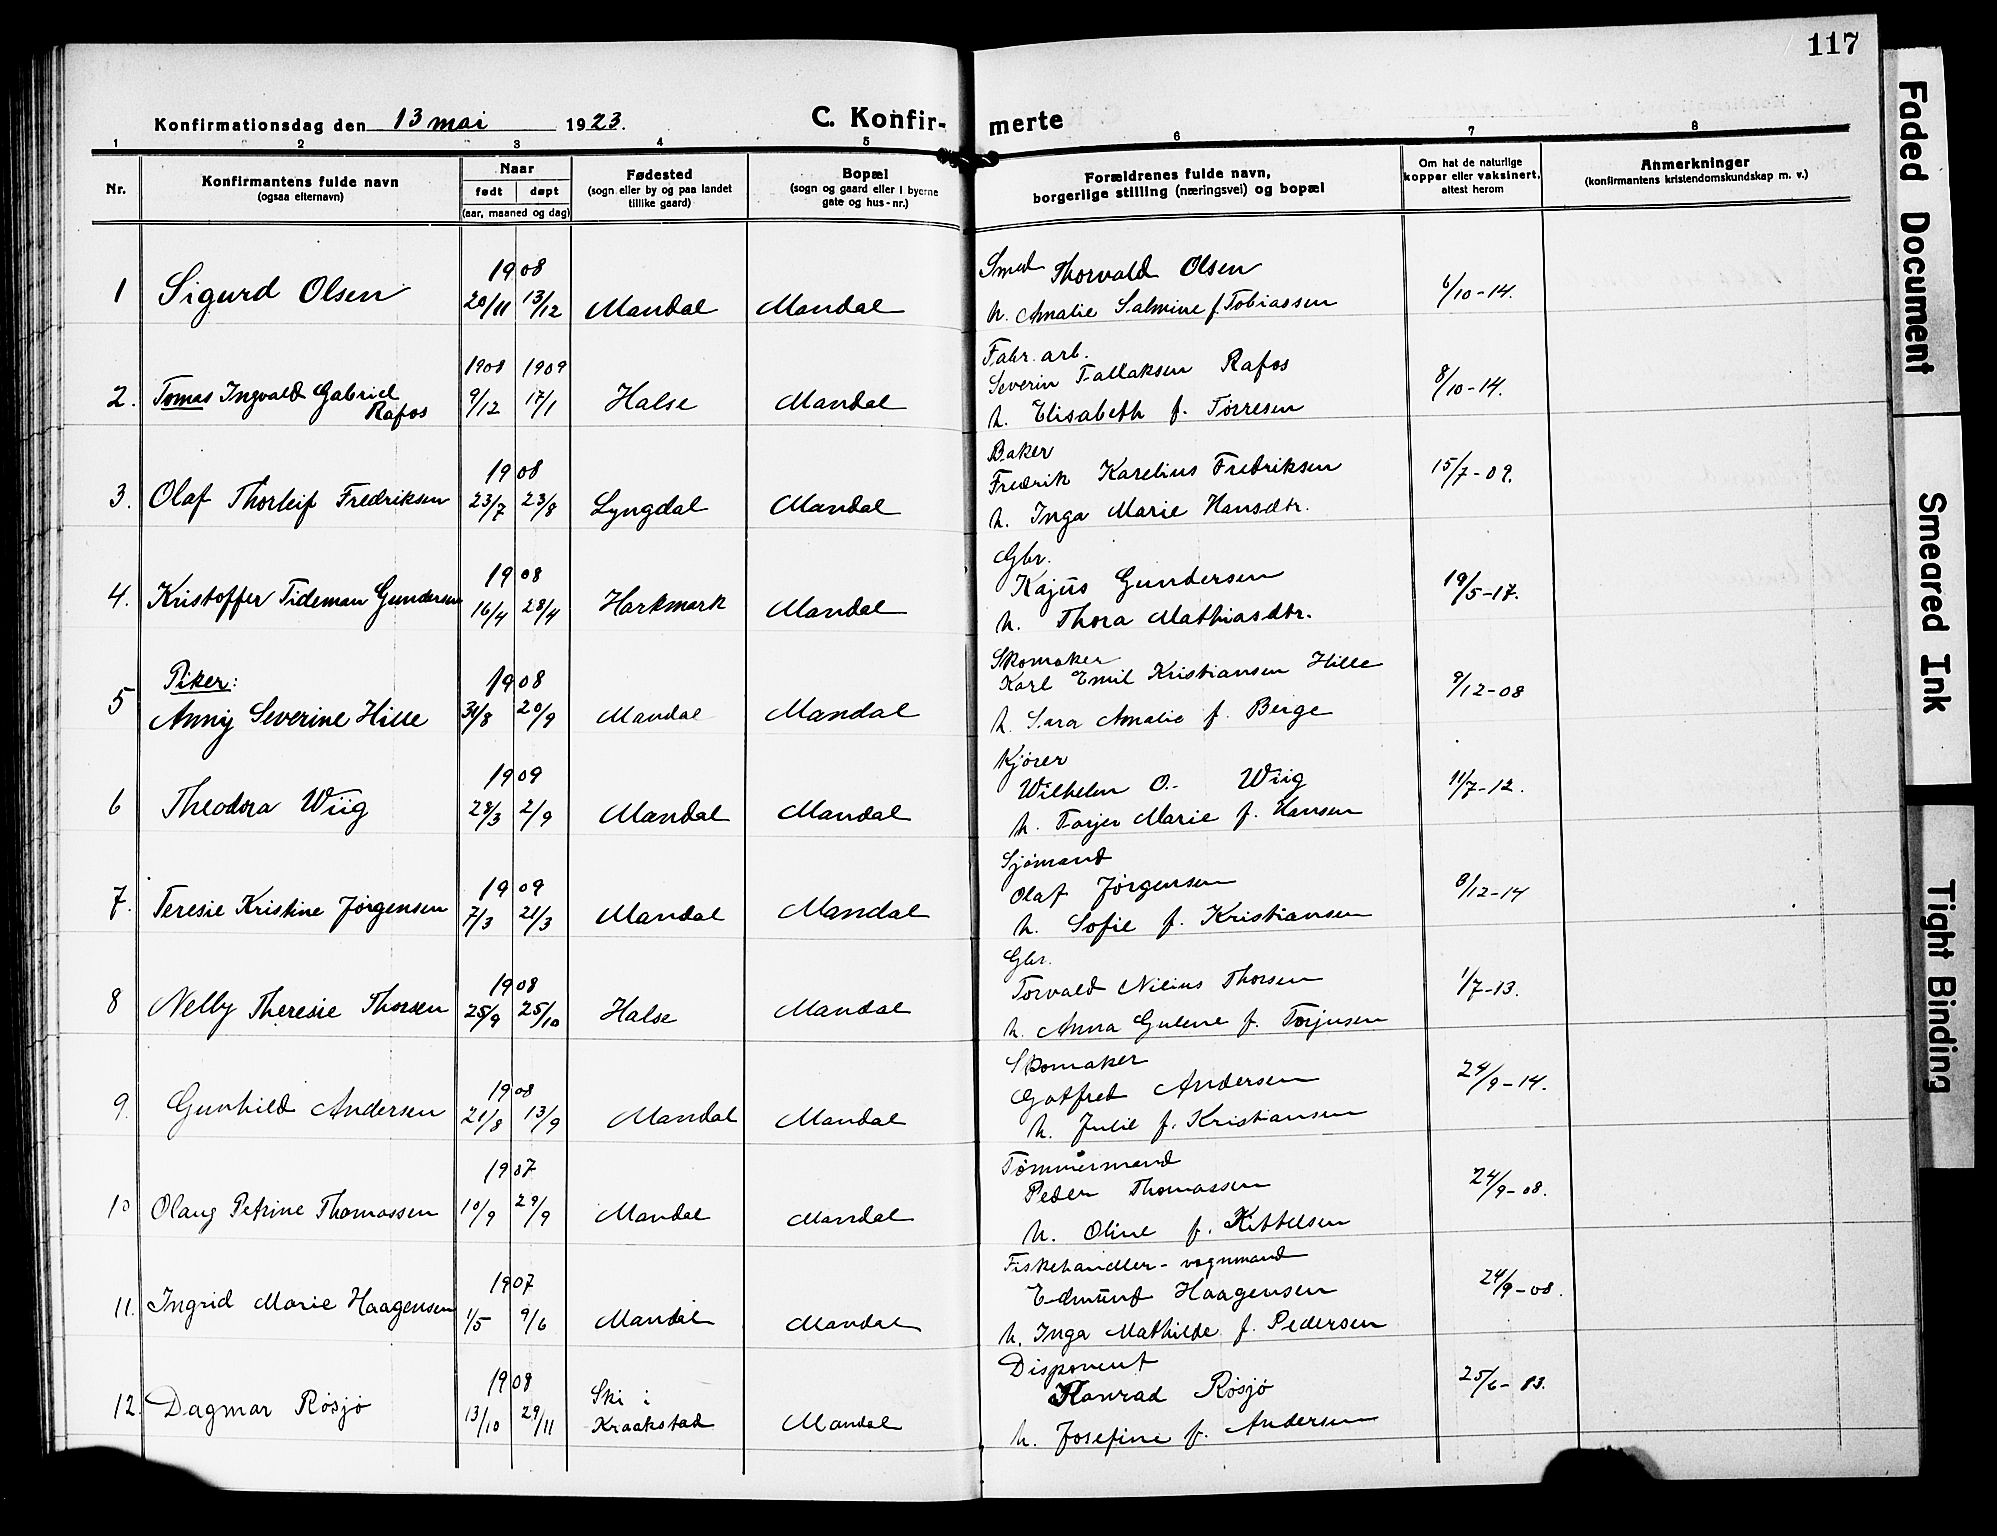 117
Konfirmationsdag den 13 mai 1923.
C. Konfirmerte
1 2 3 4 5 6 7 8
Nr.
Konfirmantens fulde navn
(ogsaa efternavn)
Naar
født døpt
(aar, maaned og dag)
Fødested
(sogn eller by og paa landet
tillike gaard)
Bopæl
(sogn og gaard eller i byerne
gate og hus-nr.)
Forældrenes fulde navn,
borgerlige stilling (næringsvei) og bopæl
Om hat de naturlige
kopper eller vaksinert,
attest herom
Anmerkninger
(konfirmantens kristendomskundskap m. v.)
1908 Smed Thorvald Olsen
1 Sigurd Olsen 20/11 13/12 Mandal Mandal h. Amalie Salmine f. Tobiassen 6/10-14.
1908 1909 Fabr. arb.
Severin Fallaksen Rafos
2. Tomas Ingvald Gabriel Rafos 9/12 17/1 Halse Mandal h. Elisabeth f. Tørresen 8/10-14.
1908 Baker
Fredrik Karelius Fredriksen
3. Olaf Thorleif Fredriksen 23/7 23/8 Lyngdal Mandal h. Inga Marie Hansdtr. 15/7-09.
1908 Gbr.
Kajus Gundersen
4. Kristoffer Tideman Gundersen 16/4 28/4 Harkmark Mandal h. Thora Mathiasdtr. 19/5-17.
Piker: 1908 Skomaker
Karl Emil Kristiansen Hille
5 Anny Severine Hille 31/8 20/9 Mandal Mandal h. Sara Amalie f. Berge 9/12-08
1909 Kjører
Wilhelm O. Wiig
6 Theodora Wiig 28/3 2/9 Mandal Mandal h. Torjer Marie f. Hansen 11/7-12.
1909 Sjømand
Olaf Jørgensen
7. Teresie Kristine Jørgensen 7/3 21/3 Mandal Mandal h. Sofie f. Kristiansen 8/12-14
1908 Gbr.
Torvald Nilius Thorsen
8 Nelly Theresie Thorsen 25/9 25/10 Halse Mandal h. Anna Gulene f. Torjusen 1/7-13.
1908 Skomaker
Gotfred Andersen
9. Gunhild Andersen 21/8 13/9 Mandal Mandal h. Julie f. Kristiansen 24/9-14.
1907 Tømmermand
Peder Thomassen
10 Olaug Petrine Thomassen 10/9 29/9 Mandal Mandal h. Oline f. Kittelsen 24/9-08.
1907 Fiskehandler - vognmand
Edmund Haagensen
11. Ingrid Marie Haagensen 1/5 9/6 Mandal Mandal h. Inga Mathilde f. Pedersen 24/9-08.
1908 Disponent
Konrad Røsjø
12. Dagmar Røsjø 13/10 29/11 Ski i Kraakstad Mandal h. Josefine f. Andersen 25/6-13.
Faded Document
Smeared Ink
Tight Binding